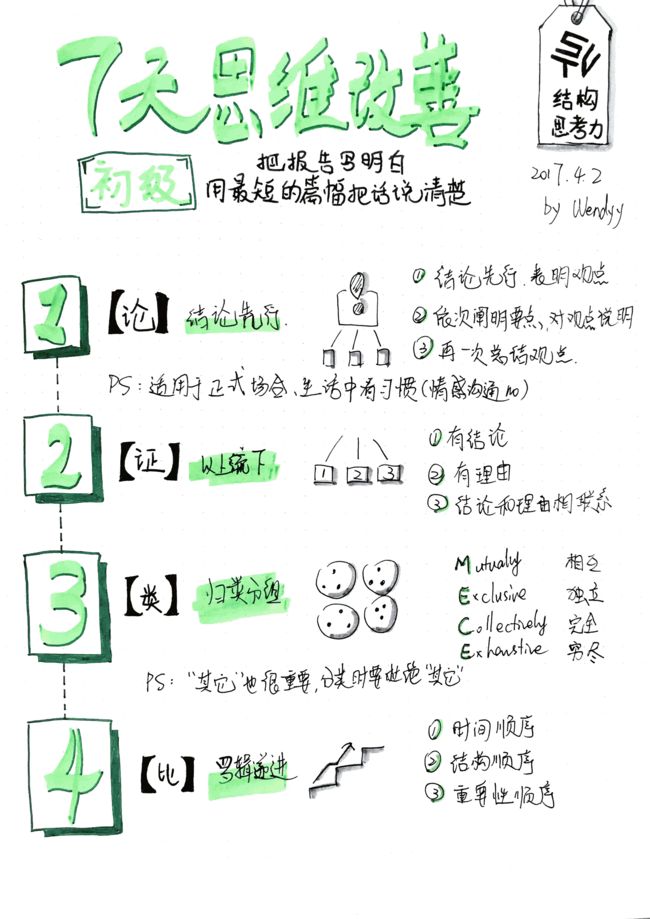 7天思维改善
结构
思考力
初级
把报告写明白
用最短的篇幅把话说清楚
2017.4.2
by Wendyy
1 【论】 结论先行.
① 结论先行.表明观点
② 依次阐明要点,对观点说明
③ 再一次总结观点.
PS:适用于正式场合、生活中看习惯(情感沟通no)
2 【证】 以上统下
1 2 3
① 有结论
② 有理由
③ 结论和理由相联系
3 【类】 归类分组
Mutualy 相互
Exclusive 独立
Collectively 完全
Exhanstive 穷尽
PS:"其它"也很重要,分类时要 "其它"
4 【比】 逻辑递进
① 时间顺序
② 结构顺序
③ 重要性顺序